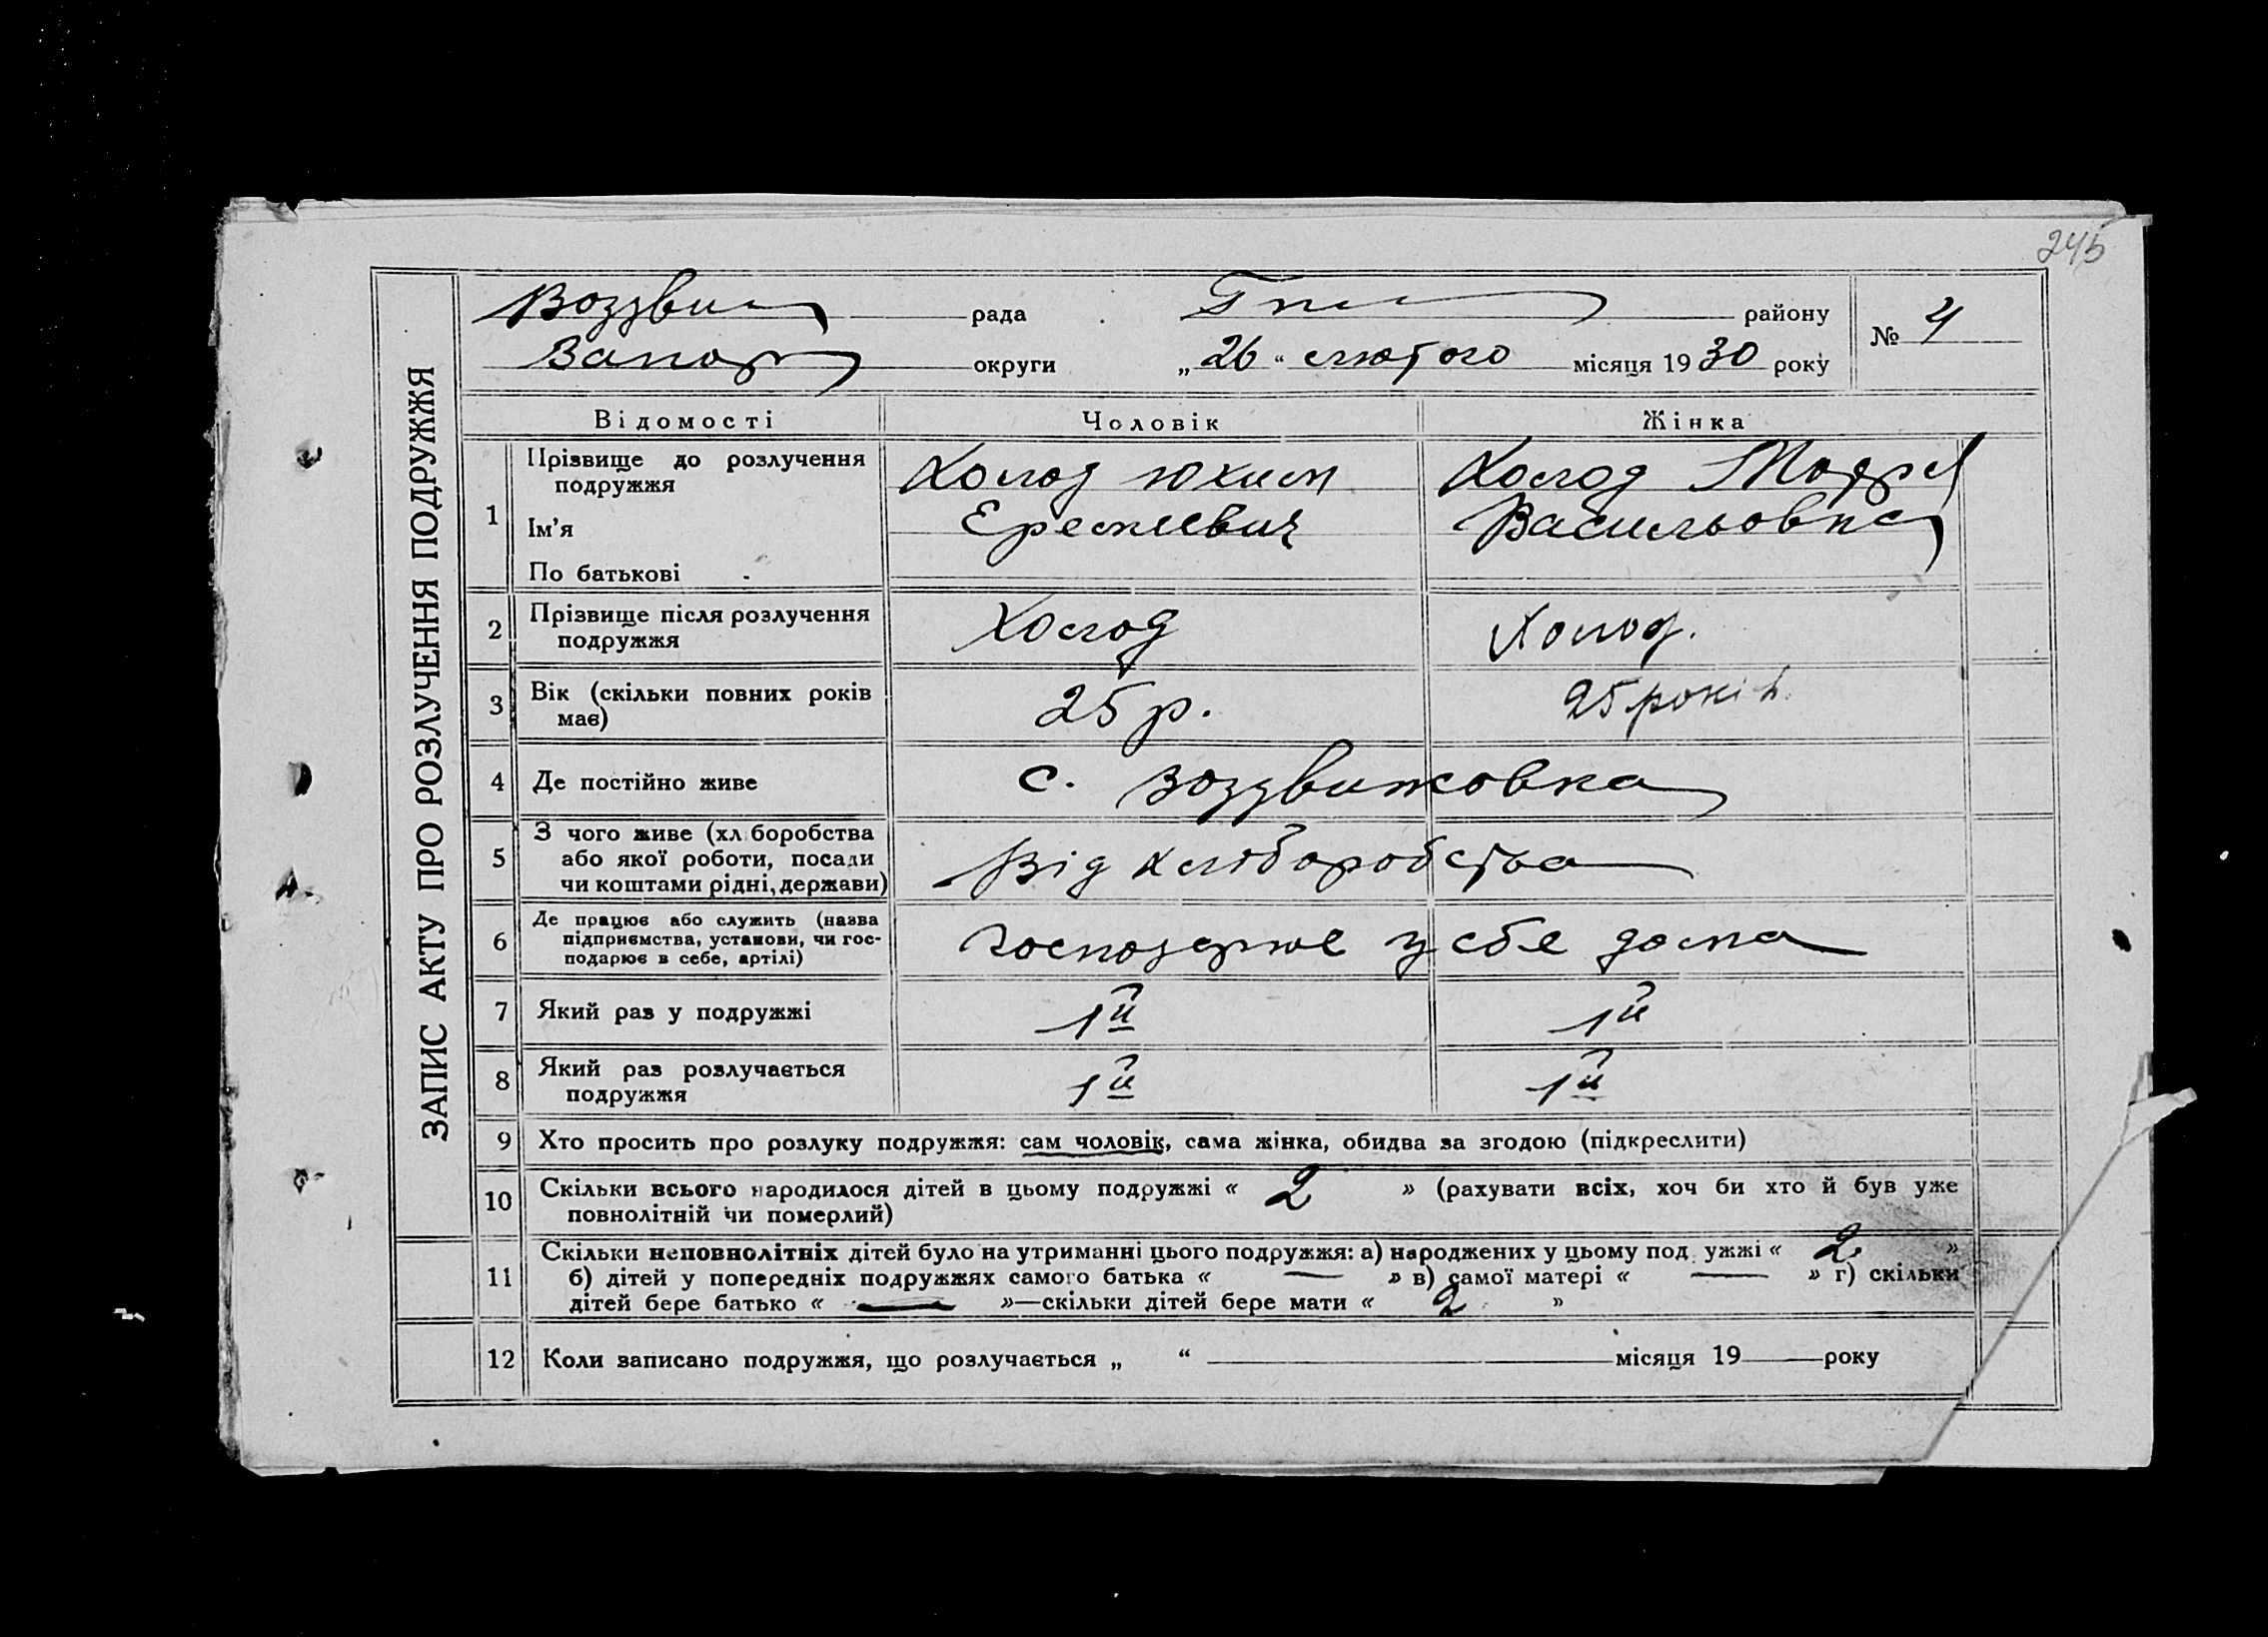 245
ЗАПИС АКТУ ПРО РОЗЛУЧЕННЯ ПОДРУЖЖЯ
Воздви рада району № 4
Запор округи „26“ лютого місяця 1930 року
Відомості Чоловік Жінка
1 Прізвище до розлучення Холод Юхим Холод
подружжя
Ім’я Еремиевич Васильовна
По батькові
2 Прізвище після розлучення Холод Холод.
подружжя
3 Вік (скільки повних років 25 р. 25 років.
має)
4 Де постійно живе с. Воздвижовка
5 З чого живе (хліборобства
або якої роботи, посади Від хліборобства
чи коштами рідні, держави)
6 Де працює або служить (назва
підприємства, установи, чи гос- господарює у себе дома
подарює в себе, артілі)
7 Який раз у подружжі 1й 1й
8 Який раз розлучається 1й 1й
подружжя
9 Хто просить про розлуку подружжя: сам чоловік, сама жінка, обидва за згодою (підкреслити)
10 Скільки всього народилося дітей в цьому подружжі « 2 » (рахувати всіх, хоч би хто й був уже
повнолітній чи померлий)
11 Скільки неповнолітніх дітей було на утриманні цього подружжя: а) народжених у цьому под ужжі « 2 »
б) дітей у попередніх подружжях самого батька « — » в) самої матері « — » г) скільки
дітей бере батько « — »—скільки дітей бере мати « 2 »
12 Коли записано подружжя, що розлучається „ “ місяця 19 року